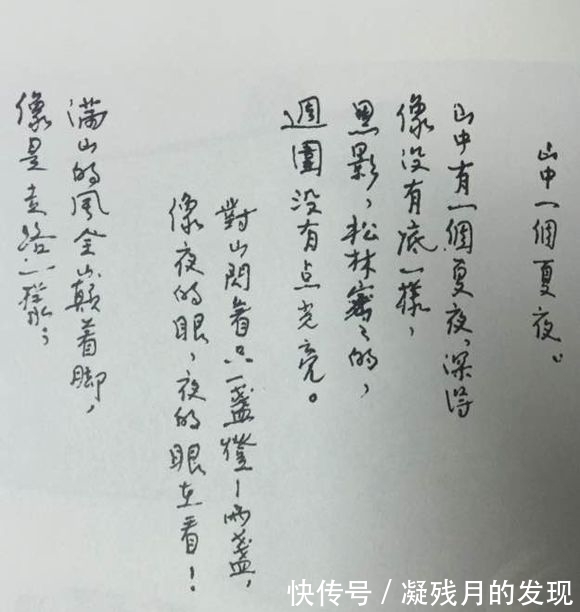 山中一個夏夜。
山中有一個夏夜，深得
像没有底一樣，
黑影，松林密密的，
週圍没有点光亮。
對山閃着只一盞燈－两盞，
像夜的眼，夜的眼在看！
滿山的風全巔着脚，
像是走路一樣；
快传号／凝残月的发现